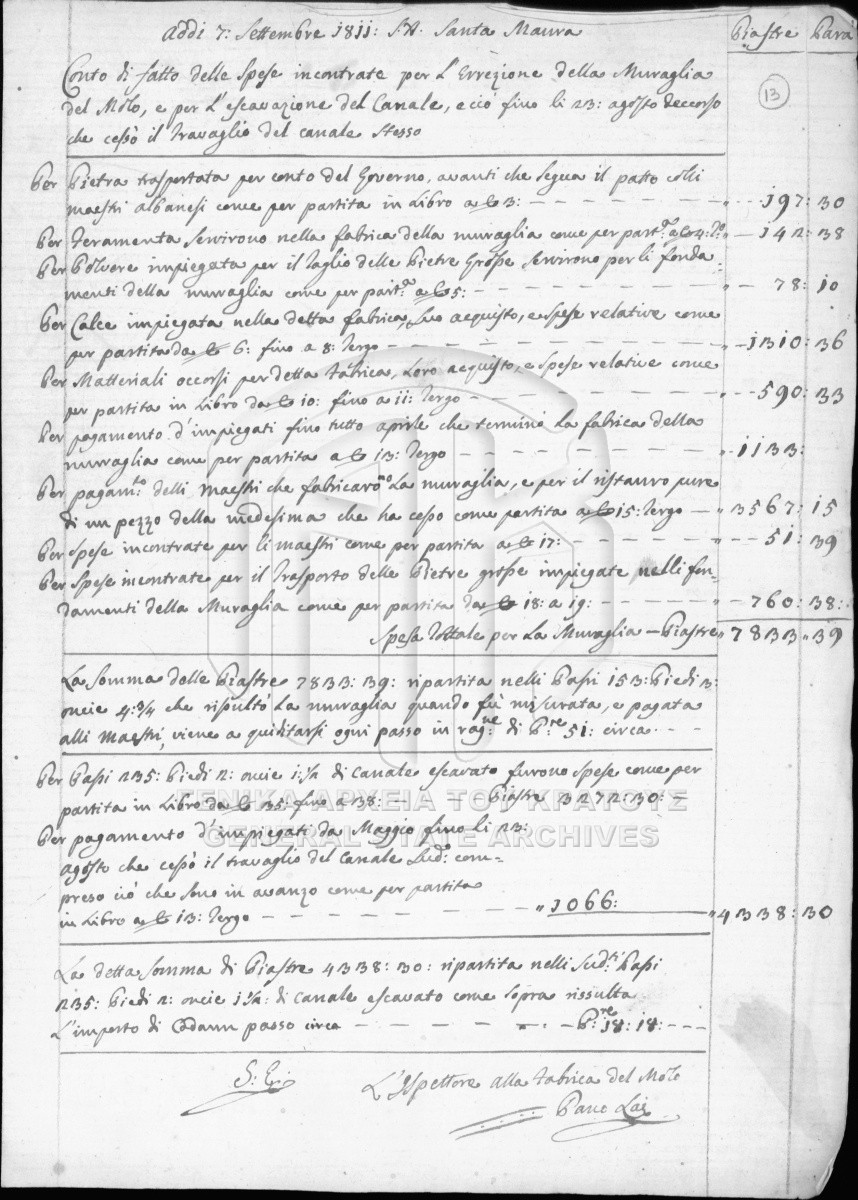 Addi 7: Settembre 1811: S.N. Santa Maura
Piastre Parà
13
Conto di fatto delle Spese incontrate per l'Errezione della Muraglia
del Molo, e per l'escavazione del Canale, e ciò fino li 23: agosto decorso
che cessò il travaglio del canale stesso
Per Pietra trasportata per conto del Governo, avanti che segua il patto colli
maestri albanesi come per partita in Libro a C 3: — — — — — — „ -- 197: 30
Per Feramenta servirono nella fabrica della muraglia come per part.ª a C 4: T.º „ — 142: 38
Per Polvere impiegata per il taglio delle Pietre Grosse servirono per li fonda
menti della muraglia come per part.ª a C 5: — — — — — — „ — 78: 10
Per Calce impiegata nella detta fabrica, suo acquisto, e spese relative come
per partita da C 6: fino a 8: Tergo — — — — — — „ — 1310: 36
Per Matteriali occorsi per detta fabrica, loro acquisto, e spese relative come
per partita in Libro da C 10: fino a 11: Tergo — — — — — „ -- 590: 33
Per pagamento d'impiegati fino tutto aprile che terminò la fabrica della
muraglia come per partita a C 13: Tergo — — — — — „ - 1133:
Per pagam.to delli maestri che fabricaro.no la muraglia, e per il ristauro pure
di un pezzo della medesima che ha cesso come partita a C 15: Tergo — „ 3567: 15
Per spese incontrate per li maestri come per partita a C 17: — — — — „ -- 51: 39
Per spese incontrate per il trasporto delle Pietre grosse impiegate nelli fon-
damenti della Muraglia come per partita da C 18: a 19: — — — — „ — 760: 38:
Spesa Tottale per la Muraglia — Piastre „ 7833 „ 39
La Somma delle Piastre 7833: 39: ripartita nelli Passi 153: Piedi 3:
oncie 4: 3/4 che risultò la muraglia quando fù misurata, e pagata
alli maestri, viene a quiditarsi ogni passo in rag.ne di P.re 51: circa
Per Passi 235: Piedi 2: oncie 1:1/2 di canale escavato furono spese come per
partita in Libro da C 35: fino a 38: — Piastre 3272: 30:
Per pagamento d'impiegati da Maggio fino li 23:
agosto che cessò il travaglio del Canale Sud.º com-
preso ciò che sono in avanzo come per partita
in Libro a C 13: Tergo — — — — — — „ 1066: „ 4338: 30
La detta Somma di Piastre 4338: 30: ripartita nelli Sud.ti Passi
235: Piedi 2: oncie 1:1/2: di canale escavato come sopra rissulta
l'importo di Cadaun passo circa — — — — — P.re 18: 18: — — —
S: E:
L'Ispettore alla fabrica del Molo
ΓΕΝΙΚΑ ΑΡΧΕΙΑ ΤΟΥ ΚΡΑΤΟΥΣ
GENERAL STATE ARCHIVES